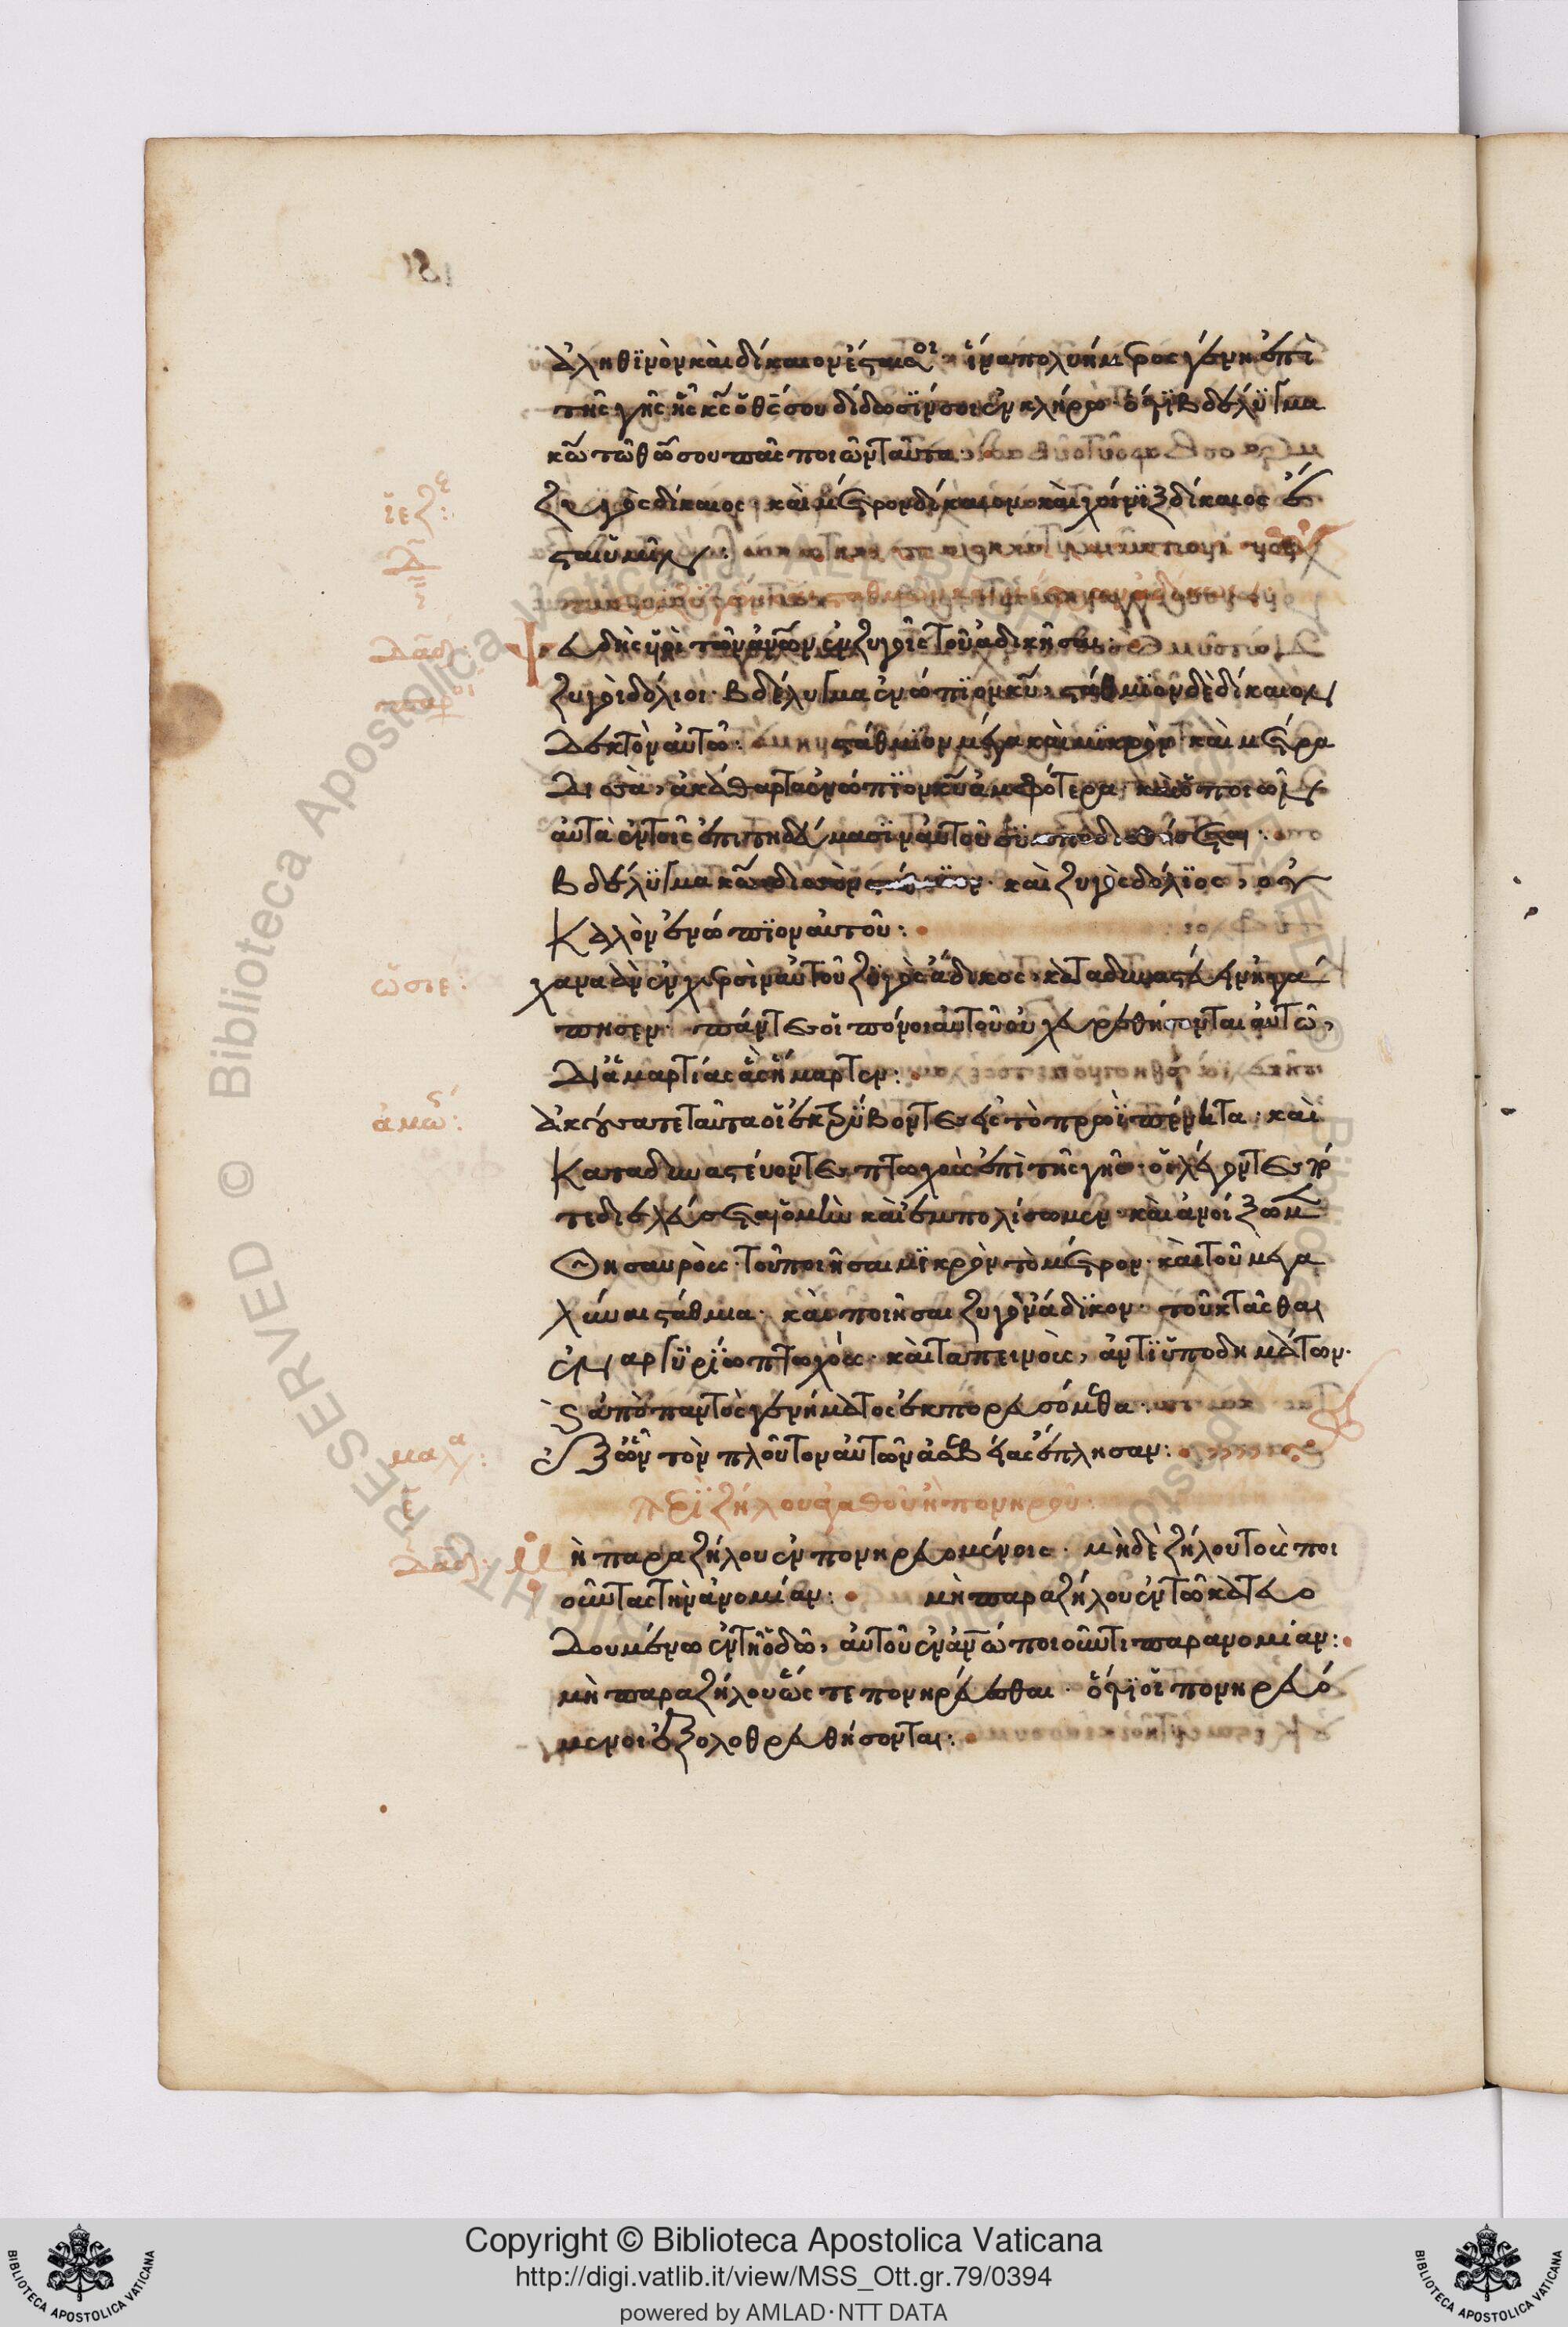 ἀληθϊνὸν καὶ δίκαιον ἔσται σοι· ἵνα πολυήμερος γένη ἐπὶ
τῆς γῆς ἧς κς ὁ θς σου δίδωσϊν σοι ἐν κλήρω· ὅτϊ βδέλϋγμα
κω τῶ θω σου πᾶς ποιῶν ταῦτα:
ἰεζε: ζυγὸς δίκαιος· καὶ μέτρον δίκαιον καὶ χοίνϊξ δίκαιος ἔ
σται ὑμῖν:
Δαδ: ψευδεῖς υἱοὶ τῶν ἀνων ἐν ζυγοῖς τοῦ ἀδικῆσαι:
παροι ζυγοὶ δόλιοι· βδέλυγμα ἐνώπϊον κυ, στάθμϊον δὲ δίκαιον
δεκτὸν αὐτῶ: στάθμϊον μέγα καὶ μϊκρὸν· καὶ μέτρα
δισσὰ, ἀκάθαρτα ἐνώπϊον κυ ἀμφότερα· καὶ ὁ ποιῶν
αὐτὰ ἐν τοῖς ἐπιτηδεύμασϊν αὐτοῦ συμποδισθήσεται:
βδέλϋγμα κω δισσὸν στάθμϊον· καὶ ζυγὸς δόλϊος, οὐ
καλὸν ἐνώπϊον αὐτοῦ:
ὡσιε: χαναὰν ἐν χερσὶν αὐτοῦ ζϋγὸς ἄδικος· καταδυναστεύειν ἠγά
πησεν· πάντες οἱ πόνοι αὐτοῦ οὐχ εὑρεθήσονται αὐτῶ,
δι' ἁμαρτίας ἃς ἥμαρτεν:
ἀμως: ἀκούσατε ταῦτα οἱ ἐκτρίβοντες εἰς τὸ πρωῒ πένητα· καὶ
καταδυναστεύοντες πτωχοὺς ἐπὶ τῆς γῆς· οἱ λέγοντες πό
τε διελεύσεται ὁ μὴν καὶ ἐμπολίσωμεν· καὶ ἀνοίξωμεν
θησαυροὺς· τοῦ ποιῆσαι μϊκρὸν τὸ μέτρον· καὶ τοῦ μεγα
λύναι στάθμια· καὶ ποιῆσαι ζυγὸν ἄδϊκον· τοῦ κτᾶσθαι
ἐν ἀργϋρΐω πτωχοὺς· καὶ ταπεινοὺς, ἀντϊ ὑποδημάτων·
καὶ ἀπὸ παντὸς γενήματος ἐκπορευσόμεθα:
μαλα: ἐξ ὧν τὸν πλοῦτον αὐτῶν ἀσεβείας ἔπλησαν:
περῒ ζήλου ἀγαθοῦ ἢ πονηροῦ:
Δαδ: μὴ παραζήλου ἐν πονηρευομένοις· μὴ δὲ ζήλου τοὺς ποι
οῦντας τὴν ἀνομίαν: μὴ παραζήλου ἐν τῶ κατευο
δουμένω ἐν τῆ ὁδῶ, αὐτοῦ ἐν ἀνω ποιοῦντι παρανομίαν:
μὴ παραζήλου ὥστε πονηρεύεσθαι· ὅτϊ οἱ πονηρευό
μενοι ἐξολοθρευθήσονται:
Copyright © Biblioteca Apostolica Vaticana
http://digi.vatlib.it/view/MSS_Ott.gr.79/0394
powered by AMLAD·NTT DATA
BIBLIOTECA APOSTOLICA VATICANA
BIBLIOTECA APOSTOLICA VATICANA